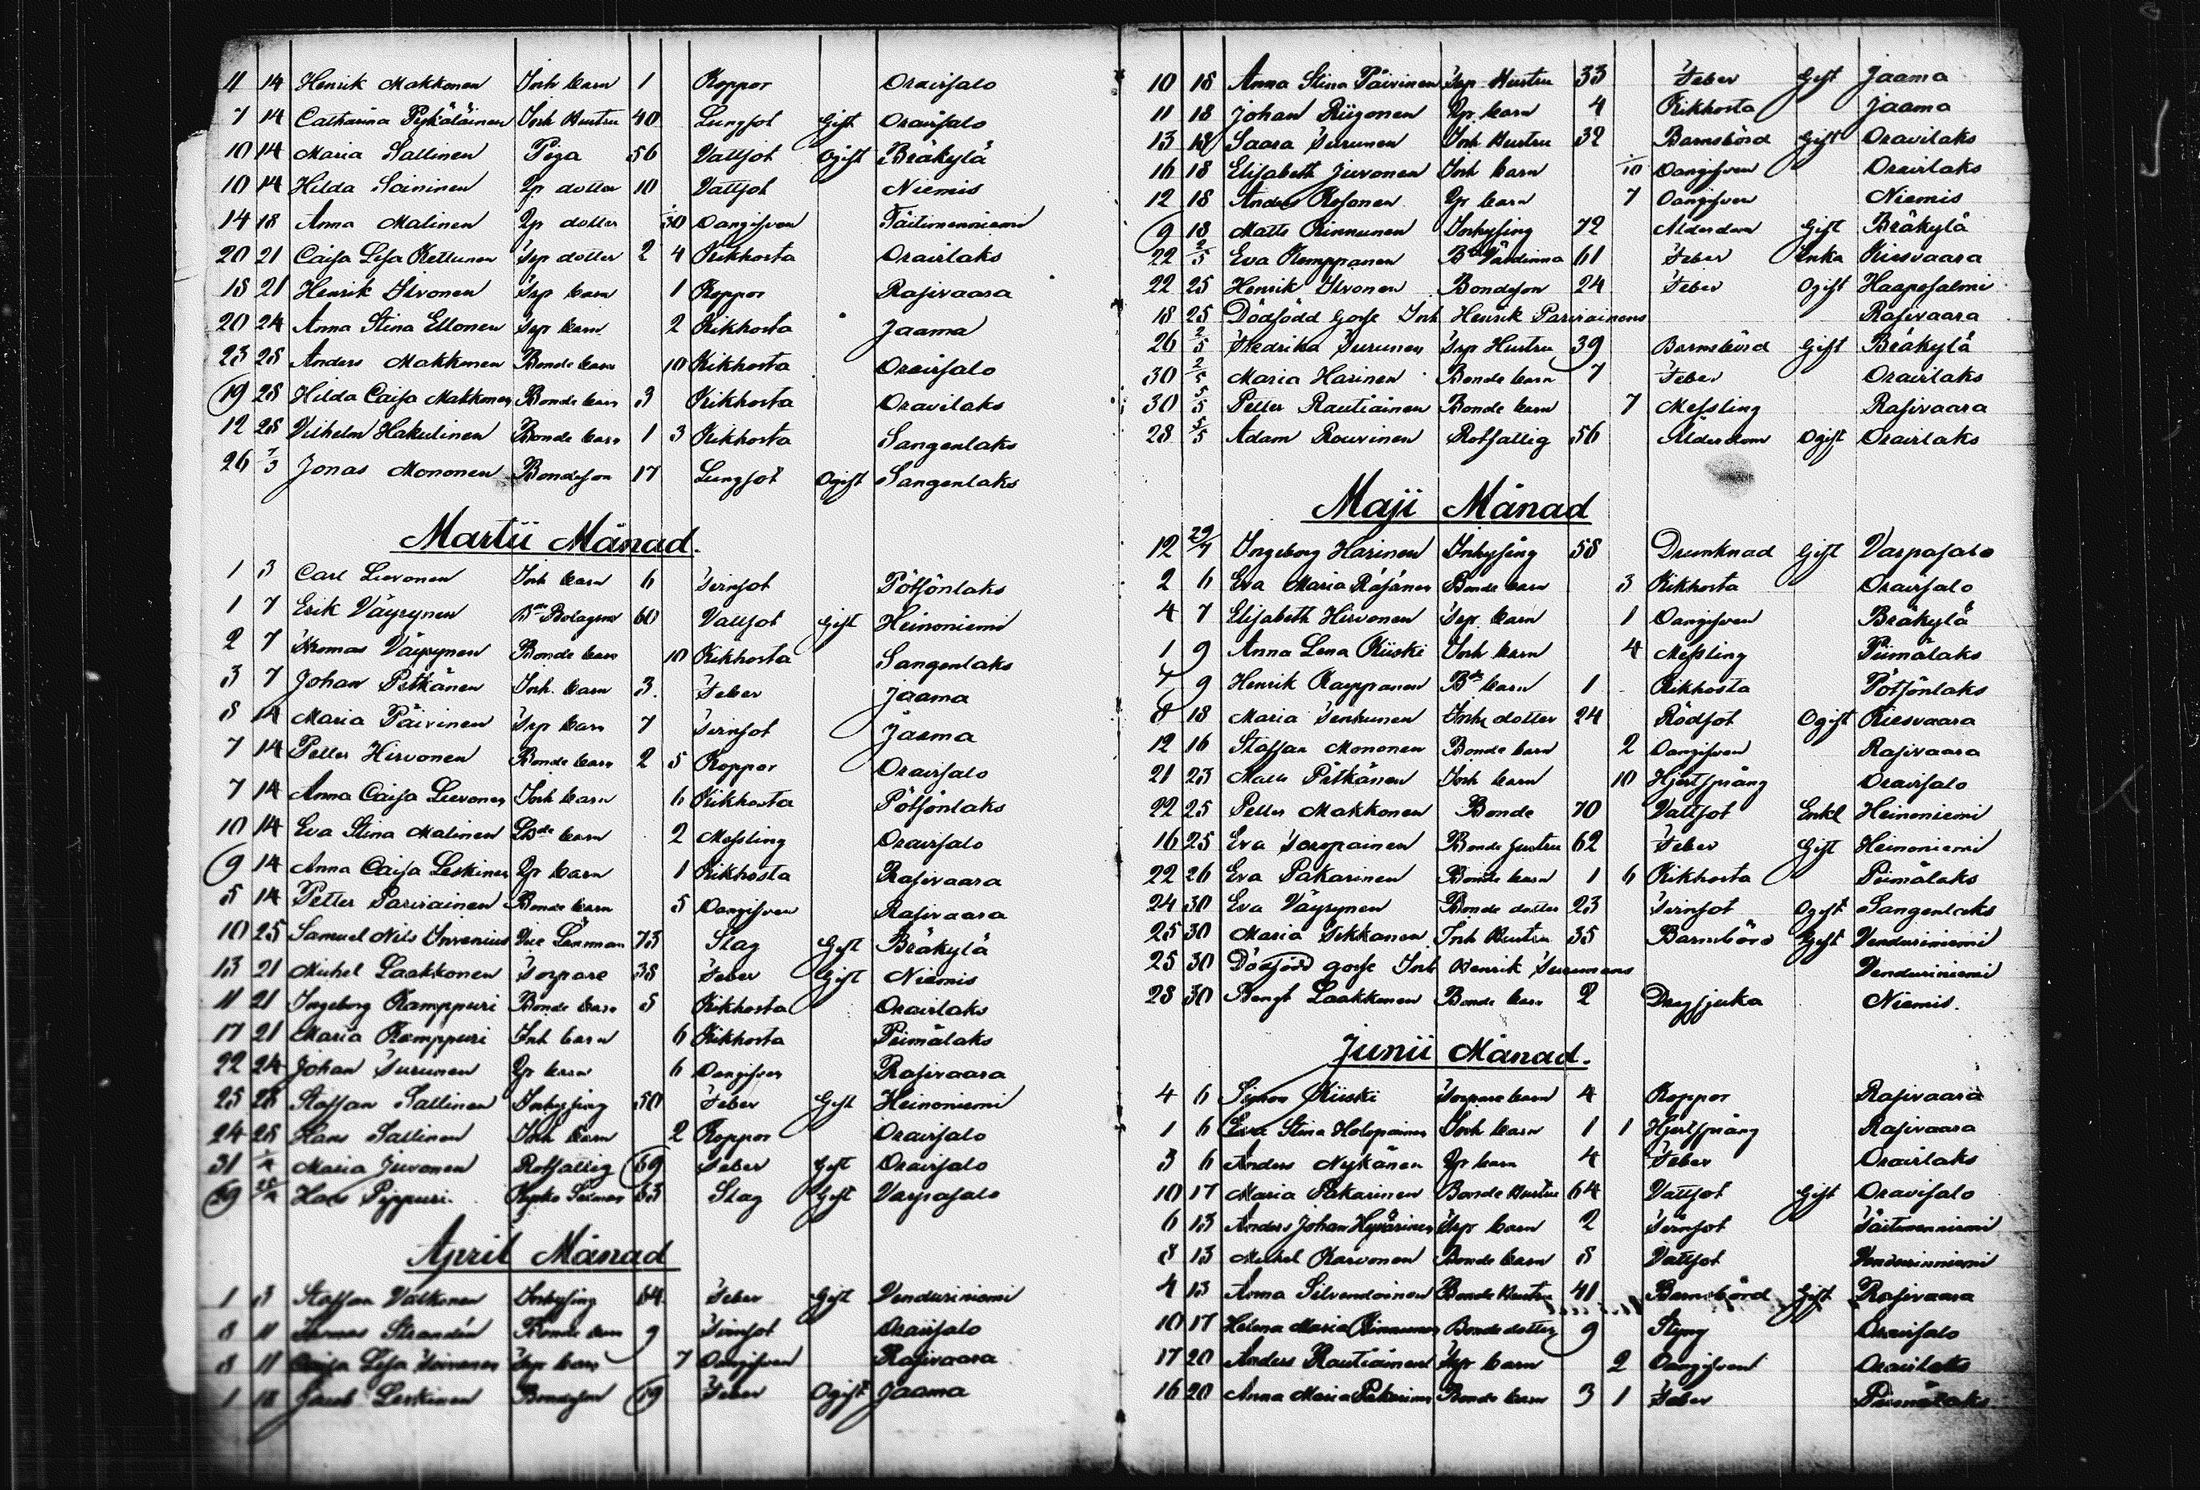 11 14 Henrik Makkonen Inh barn 1 Koppor Oravisalo
7 14 Catharina Pykäläinen Inh Hustru 40 Lungsot Gift Oravisalo
10 14 Maria Sallinen Piga 56 Vattsot Ogift Bräkylä
10 14 Hilda Saininen Lp dotter 10 Vattsot Niemis
14 18 Anna Malinen Lp dotter 1/30 Oangifven Täitimenniemi
20 21 Caisa Lisa Kettunen Trp dotter 2 4 Kikhosta Oravilaks
18 21 Henrik Ilvonen Trp barn 1 Koppor Rasivaara
20 24 Anna Stina Ellonen Trp barn 2 Kikhosta Jaama
23 28 Anders Makkonen Bonde barn 10 Kikhosta Oravisalo
19 28 Hilda Caisa Makkonen Bonde barn 3 Kikhosta Oravilaks
12 28 Vilhelm Hakulinen Bonde barn 1 3 Kikhosta Sangenlaks
26 1/3 Jonas Mononen Bondeson 17 Lungsot Ogift Sangenlaks
Martii Månad.
1 3 Carl Lievonen Inh barn 6 Tvinsot Pötsönlaks
1 7 Erik Väyrynen Bde Bolagsm 60 Vattsot Gift Heinoniemi
2 7 Thomas Väyrynen Bonde barn 10 Kikhosta Sangenlaks
3 7 Johan Pitkänen Inh. barn 3. Feber Jaama
8 14 Maria Päivinen Trp barn 7 Tvinsot Jaama
7 14 Petter Hirvonen Bonde barn 2 5 Koppor Oravisalo
7 14 Anna Caisa Lievonen Inh barn 6 Kikhosta Pötsönlaks
10 14 Eva Stina Malinen Bde barn 2 Messling Oravisalo
9 14 Anna Caisa Leskinen Lp barn 1 Kikhosta Rasivaara
5 14 Petter Parviainen Bonde barn 5 Oangifven Rasivaara
10 25 Samuel Nils Invenius Vice Länman 73 Slag Gift Bräkylä
13 21 Michel Laakkonen Torpare 38 Feber Gift Niemis
11 21 Ingeborg Kamppuri Bonde barn 5 Kikhosta Oravilaks
17 21 Maria Kamppuri Inh barn 6 Kikhosta Piimälaks
22 24 Johan Turunen Lp barn 6 Oangifven Rasivaara
25 28 Staffan Sallinen Inhysing 50 Feber Gift Heinoniemi
24 28 Hans Sallinen Inh barn 2 Koppor Oravisalo
31 1/4 Maria Juvonen Rotfattig 69 Feber Gift Oravisalo
Hans Pippuri. Kyrko 63 Slag Gift Varpasalo
April Månad
1 3 Staffan Valkonen Inhysing 64 Feber Gift Venduriniemi
8 11 Thomas Strandén Bonde barn 9 Tvinsot Oravisalo
8 11 Caisa Lisa Toivanen Trp barn 7 Oangifven Rasivaara
1 18 Jacob Leskinen Bondeson 19 Feber Ogift Jaama
10 18 Anna Stina Päivinen Trp Hustru 33 Feber Gift Jaama
11 18 Johan Riigonen Lp barn 4 Kikhosta Jaama
13 18 Saara Turunen Inh Hustru 32 Barnsbörd Gift Oravilaks
16 18 Elisabeth Juvonen Inh barn 1/10 Oangifven Oravilaks
12 18 Anders Kosonen Lp barn 7 Oangifven Niemis
9 18 Matts Kinnunen Inhysing 72 Ålderdom Gift Bräkylä
22 2/5 Eva Kemppanen Bde Värdinna 61 Feber Enka Kiesvaara
22 25 Henrik Ilvonen Bondeson 24 Feber Ogift Haapasalmi
18 25 Dödfödd Gosse Inh Henrik Parviainens Rasivaara
26 2/5 Fredrika Turunen Trp Hustru 39 Barnsbörd Gift Bräkylä
30 2/5 Maria Harinen Bonde barn 7 Feber Oravilaks
30 5/5 Petter Rautiainen Bonde barn 7 Messling Rasivaara
28 5/5 Adam Rouvinen Rotfattig 56 Ålderdom Ogift Oravilaks
Maji Månad
12 29/4 Ingeborg Harinen Inhysing 58 Drunknad Gift Varpasalo
2 6 Eva Maria Räsänen Bonde barn 3 Kikhosta Oravisalo
4 7 Elisabeth Hirvonen Trp. barn 1 Oangifven Bräkylä
1 9 Anna Lena Kiiski Inh barn 4 Messling Piimälaks
7 9 Henrik Karppanen Bde barn 1 Kikhosta Pötsönlaks
8 18 Maria Tenhunen Inh dotter 24 Rödsot Ogift Kiesvaara
12 16 Staffan Mononen Bonde barn 2 Oangifven Rasivaara
21 23 Matts Pitkänen Inh barn 10 Hjertsprång Oravisalo
22 25 Petter Makkonen Bonde 70 Vattsot Enkl Heinoniemi
16 25 Eva Toropainen Bonde Hustru 62 Feber Gift Heinoniemi
22 26 Eva Pakarinen Bonde barn 1 6 Kikhosta Piimälaks
24 30 Eva Väyrynen Bonde dotter 23 Tvinsot Ogift Sangenlaks
25 30 Maria Ikkanen Inh Hustru 35 Barnsbörd Gift Venduriniemi
25 30 Dödfödd gosse Inh Henrik Turunens Venduriniemi
28 30 Bengt Laakkonen Bonde barn 2 Dragsjuka Niemis.
Junii Månad.
4 6 Simon Kiiski Torpare barn 4 Koppor Rasivaara
1 6 Eva Stina Holopainen Inh barn 1 1 Hjertsprång Rasivaara
3 6 Anders Nykänen Lp barn 4 Feber Oravilaks
10 17 Maria Pakarinen Bonde Hustru 64 Vattsot Gift Oravisalo
6 13 Anders Johan Hyvärinen Trp barn 2 Tvinsot Täitimenniemi
8 13 Michel Karvonen Bonde barn 8 Vattsot Venduriniemi
4 13 Anna Silvendoinen Bonde Hustru 41 Barnsbörd Gift Rasivaara
10 17 Helena Maria Kinnunen Bonde dotter 9 Styng Oravisalo
17 20 Anders Rautiainen Trp barn 2 Oangifven Oravilaks
16 20 Anna Maria Pakarinen Bonde barn 3 1 Feber Piimälaks